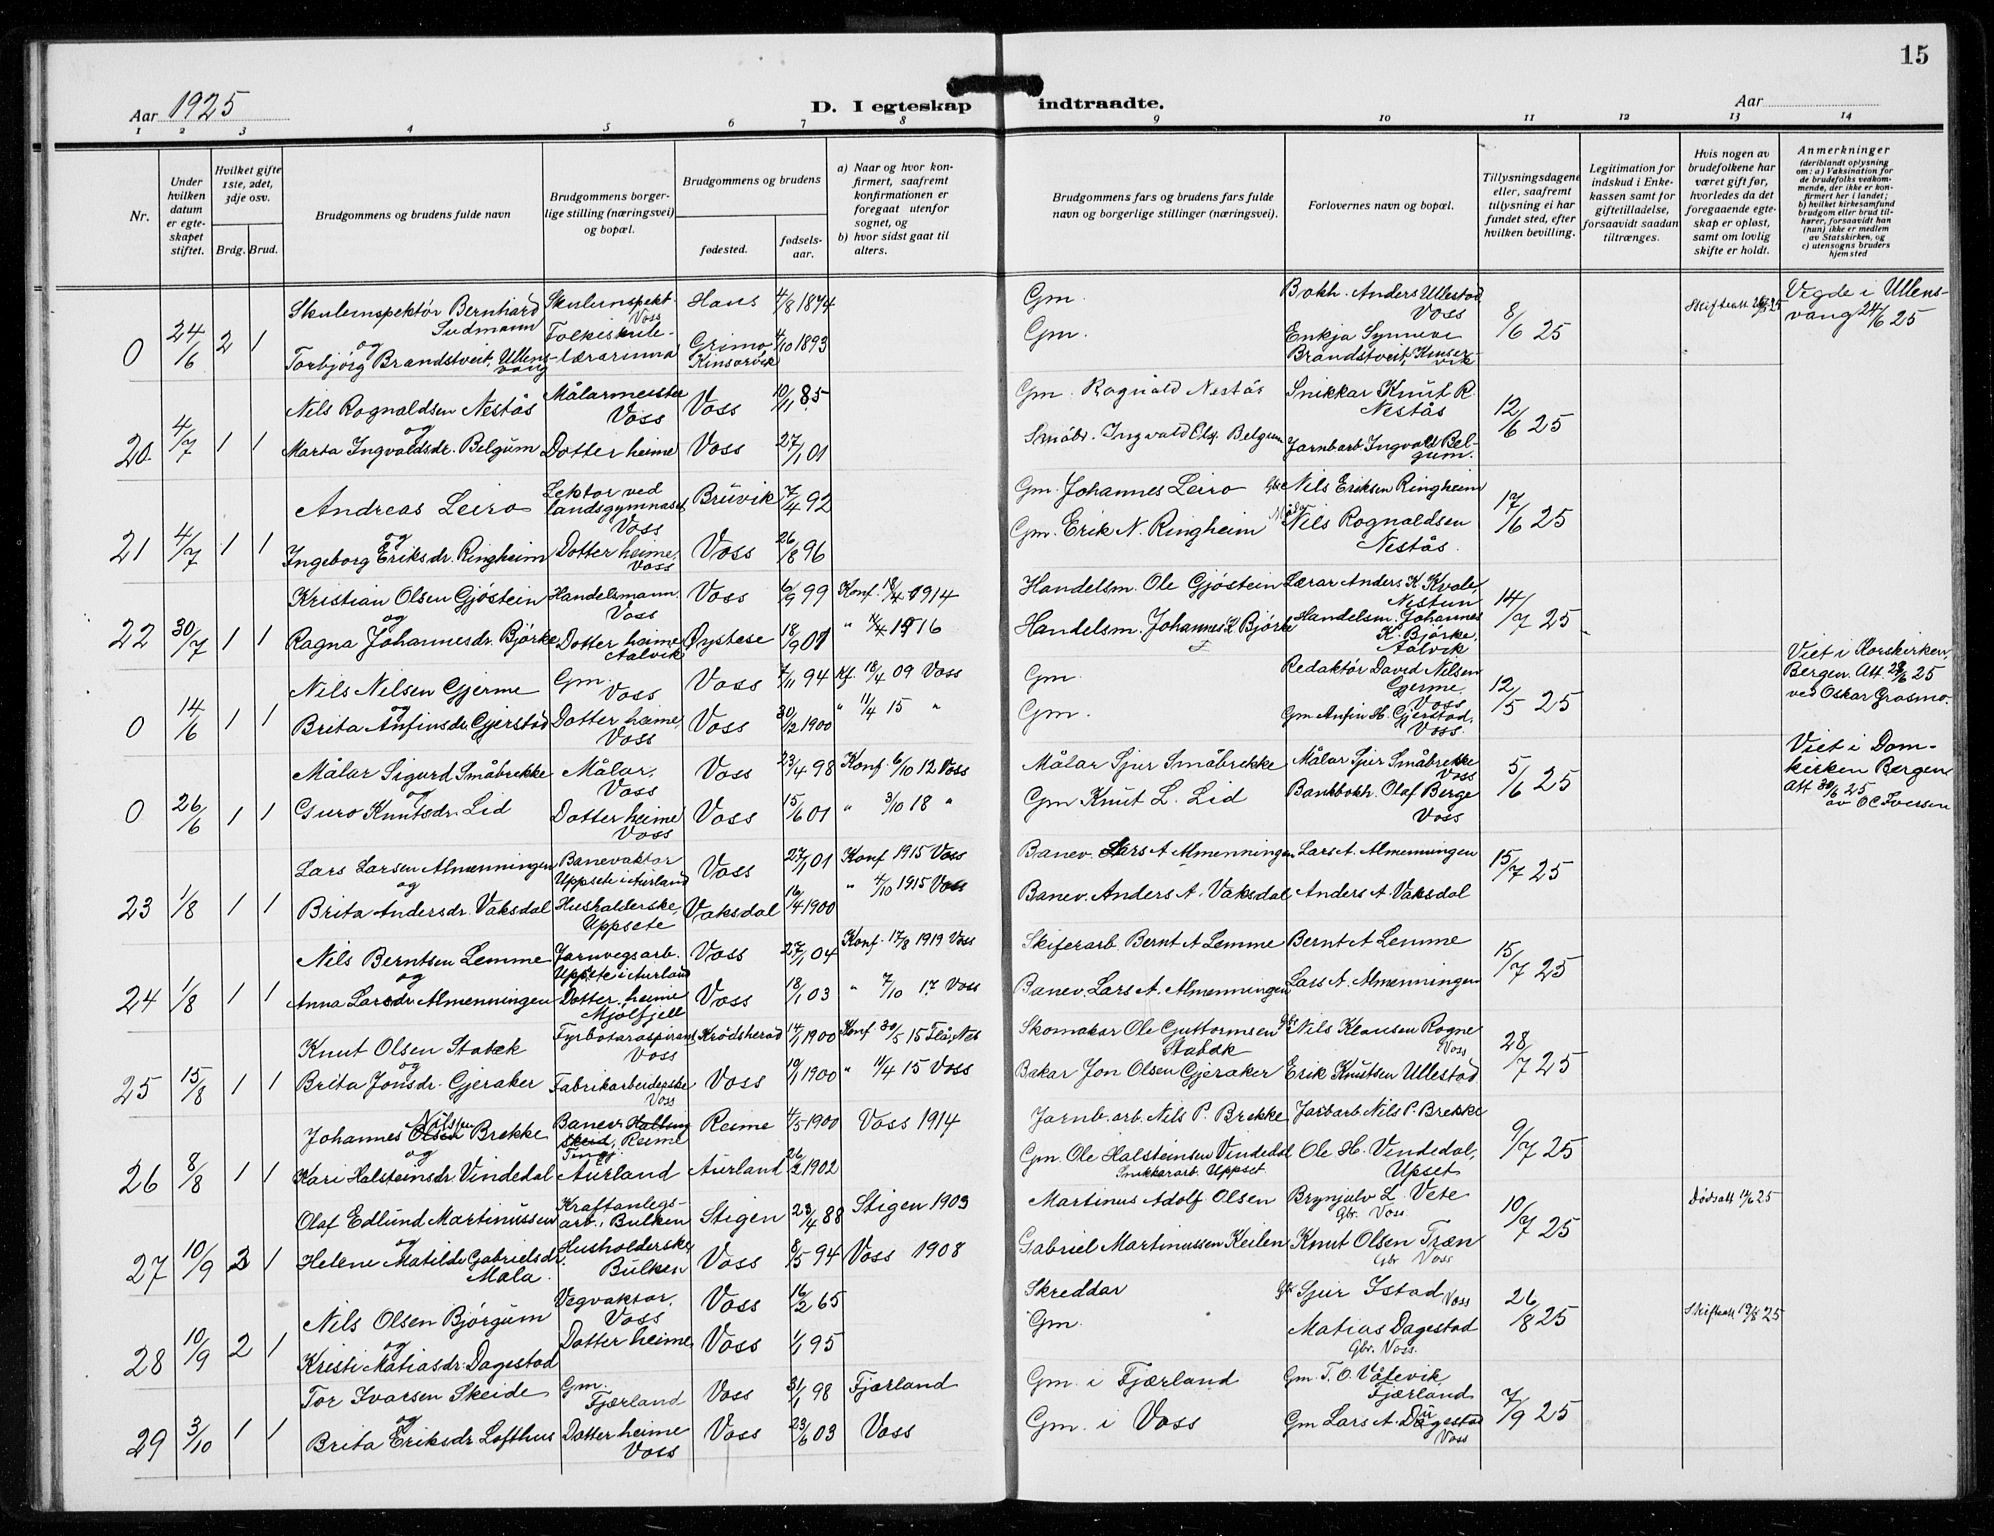 15
Aar 1925
D. I egteskap indtraadte.
Aar
1 2 3 4 5 6 7 8 9 10 11 12 13 14
Nr.
Under hvilken datum er egteskapet stiftet.
Hvilket gifte 1ste, 2det, 3dje osv.
Brdg. Brud.
Brudgommens og brudens fulde navn
Brudgommens borgerlige stilling (næringsvei) og bopæl.
Brudgommens og brudens
fødested.
fødselsaar.
a) Naar og hvor konfirmert, saafremt konfirmationen er foregaat utenfor sognet, og
b) hvor sidst gaat til alters.
Brudgommens fars og brudens fars fulde navn og borgerlige stillinger (næringsvei).
Forlovernes navn og bopæl.
Tillysningsdagene eller, saafremt tillysning ei har fundet sted, efter hvilken bevilling.
Legitimation for indskud i Enkekassen samt for giftetilladelse, forsaavidt saadan tiltrænges.
Hvis nogen av brudefolkene har været gift før, hvorledes da det foregaaende egteskap er opløst, samt om lovlig skifte er holdt.
Anmerkninger
(deriblandt oplysning om: a) Vaksination for de brudefolks vedkommende, der ikke er konfirmert her i landet; b) hvilket kirkesamfund brudgom eller brud tilhører, forsaavidt han (hun) ikke er medlem av Statskirken, og c) utensogns bruders hjemsted
0 24/6 2 1 Skuleinspektør Bernhard Sudmann Skuleinspekt. Voss Haus 4/8 1874 Gm. Bokh. Anders Ullestad Voss 8/6 25 Skifteatt 26/5 25 Vigde i Ullensvang 24/6 25
og Torbjørg Brandstveit, Ullensvang Folkeskulelærarinna Grimo Kinsarvik 4/10 1893 Gm. Enkja Synneve Brandstveit, Kinservik
20 4/7 1 1 Nils Rognaldsen Nestås Målarmeister Voss Voss 10/11 85 Gm. Rognald Nestås Snikkar Knut R. Nestås 12/6 25
og Marta Ingvaldsdr. Belgum Dotter heime Voss 27/1 01 Småbr. Ingvald Els. Belgum Jarnbarb. Ingvald Belgum.
21 4/7 1 1 Andreas Leiro Lektor ved landsgymnaset Voss Bruvik 7/4 92 Gm. Johannes Leiro Gbr. Nils Eriksen Ringheim 17/6 25
og Ingeborg Eriksdr. Ringheim Dotter heime, Voss Voss 26/8 96 Gm. Erik N. Ringheim Målar Nils Rognaldsen Nestås.
22 30/7 1 1 Kristian Olsen Gjøstein Handelsmann. Voss Voss 6/9 99 Konf. 18/4 1914 Handelsm. Ole Gjøstein Lærar Anders K. Kvale, Nestun 14/7 25
og Ragna Johannesdr. Bjørke Dotter heime, Aalvik Øystese 18/9 01 " 1916 Handelsm. Johannes K Bjørke Handelsm. Johannes K. Bjørke, Aalvik
0 14/6 1 1 Nils Nilsen Gjerme Gm. Voss Voss 7/11 94 Kf. 18/4 09 Voss Gm Redaktør David Nilsen Gjerme, Voss 12/5 25 Viet i Korskirken, Bergen. Att 29/6 25 ved Oskar Grasmo.
og Brita Anfinsdr. Gjerstad Dotter heime, Voss Voss 30/12 1900 " 11/4 15 " Gm. Gm Anfin H. Gjerstad, Voss
0 26/6 1 1 Målar Sigurd Småbrekke Målar, Voss Voss 23/4 98 Konf. 6/10 12 Voss Målar Sjur Småbrekke Målar Sjur Småbrekke Voss 5/6 25 Viet i Domkirken Bergen Att 30/6 25 av O C Iversen
og Guro Knutsdr. Lid Dotter heime Voss Voss 15/6 01 " 3/10 18 " Gm Knut L. Lid Bankbokh. Olaf Berge Voss
23 1/8 1 1 Lars Larsen Almenningen Banevaktar Uppsete i Aurland Voss 27/1 01 Konf 1915 Voss Banev. Lars A Almenningen Lars A. Almenningen 15/7 25
og Brita Andersdr. Vaksdal Husholderske, Uppsete Vaksdal 16/4 1900 " 4/10 1915 Voss Banev. Anders A. Vaksdal Anders A. Vaksdal
24 1/8 1 1 Nils Berntsen Lemme Jarnvegsarb. Uppsete i Aurland Voss 27/1 04 Konf. 17/8 1919 Voss Skiferarb. Bernt A Lemme Bernt A Lemme 15/7 25
og Anna Larsdr Almenningen Dotter heime Mjølfjell Voss 18/1 03 " 7/10 17 Voss Banev. Lars A. Almenningen Lars A. Almenningen
25 15/8 1 1 Knut Olsen Stabæk Fyrbøtaraspirant Voss Krødsherad 14/1 1900 Konf 30/5 15 Flå, Nes Skomakar Ole Guttormsen Stabæk Gbr Nils Klausen Rogne Voss 28/7 25
og Brita Jonsdr. Gjeraker Fabrikarbeiderske Voss Voss 19/1 1900 " 11/4 15 Voss Bakar Jon Olsen Gjeraker Erik Knutsen Ullestad
26 8/8 1 1 Johannes Olsen Nilssen Brekke Banev. Halling skeid, Reime Reime 4/5 1900 Voss 1914 Jarnb. arb. Nils P. Brekke Jarbarb. Nils P. Brekke 9/7 25
og Kari Halsteinsdr. Vindedal Aurland Aurland 26/2 1902 Gm. Ole Halsteinsen Vindedal Snikkararb. Uppset Ole H. Vindedal, Upset
27 10/9 2 1 Olaf Edlund Martinussen Kraftanlegsarb., Bulken Stigen 23/4 88 Stigen 1903 Martinus Adolf Olsen Brynjulv L. Vete Gbr. Voss 10/7 25 Dødsatt 17/6 25
og Helene Matilde Gabrielsdr. Mala. Husholderske Bulken Voss 8/5 94 Voss 1908 Gabriel Martinussen Keilen Knut Olsen Træn Gbr Voss
28 10/9 2 1 Nils Olsen Bjørgum Vegvaktar, Voss Voss 16/2 65 Skreddar Gbr Sjur Istad Voss 26/8 25 Skifteatt 19/8 25
og Kristi Matiasdr. Dagestad Dotter heime Voss 1/1 95 Gm. Matias Dagestad Gbr. Voss.
29 3/10 1 1 Tor Ivarsen Skeide Gm. Fjærland Voss 31/1 98 Fjærland Gm. i Fjærland Gm. T. O. Våtevik, Fjærland 7/9 25
og Brita Eriksdr Lofthus Dotter heime Voss Voss 23/6 03 Voss Gm. i Voss Gm Lars A. Dagestad Voss